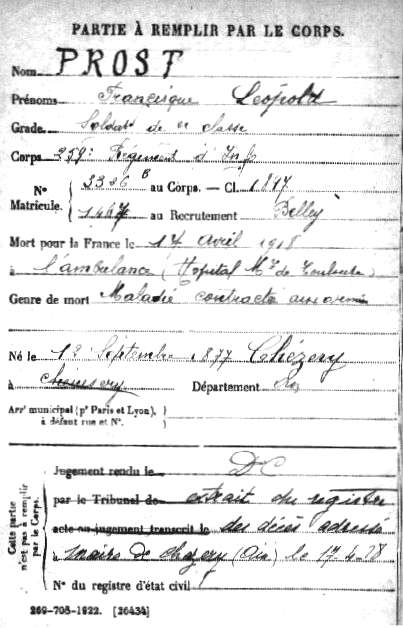 PARTIE À REMPLIR PAR LE CORPS.
Nom PROST
Prénoms Francisque Léopold
Grade Soldat de 2e classe
Corps 359e Régiment d'Inf
N° Matricule. 3336 B au Corps. — Cl. 1897
1467 au Recrutement Belley
Mort pour la France le 14 avril 1918
à l'ambulance (Hôpital Mre de Toulouse)
Genre de mort Maladie contracté aux armées
Né le Septembre 1877 Chézery
à Département Ain
Arrt municipal (pr Paris et Lyon),
à défaut rue et N°.
Cette partie n'est pas à remplir par le Corps.
Jugement rendu le DC
par le Tribunal de extrait du register
acte ou jugement transcrit le des décès adressé
à maire de Chezery (Ain) le 17-4-28
N° du registre d'état civil
269-708-1922. [26434]